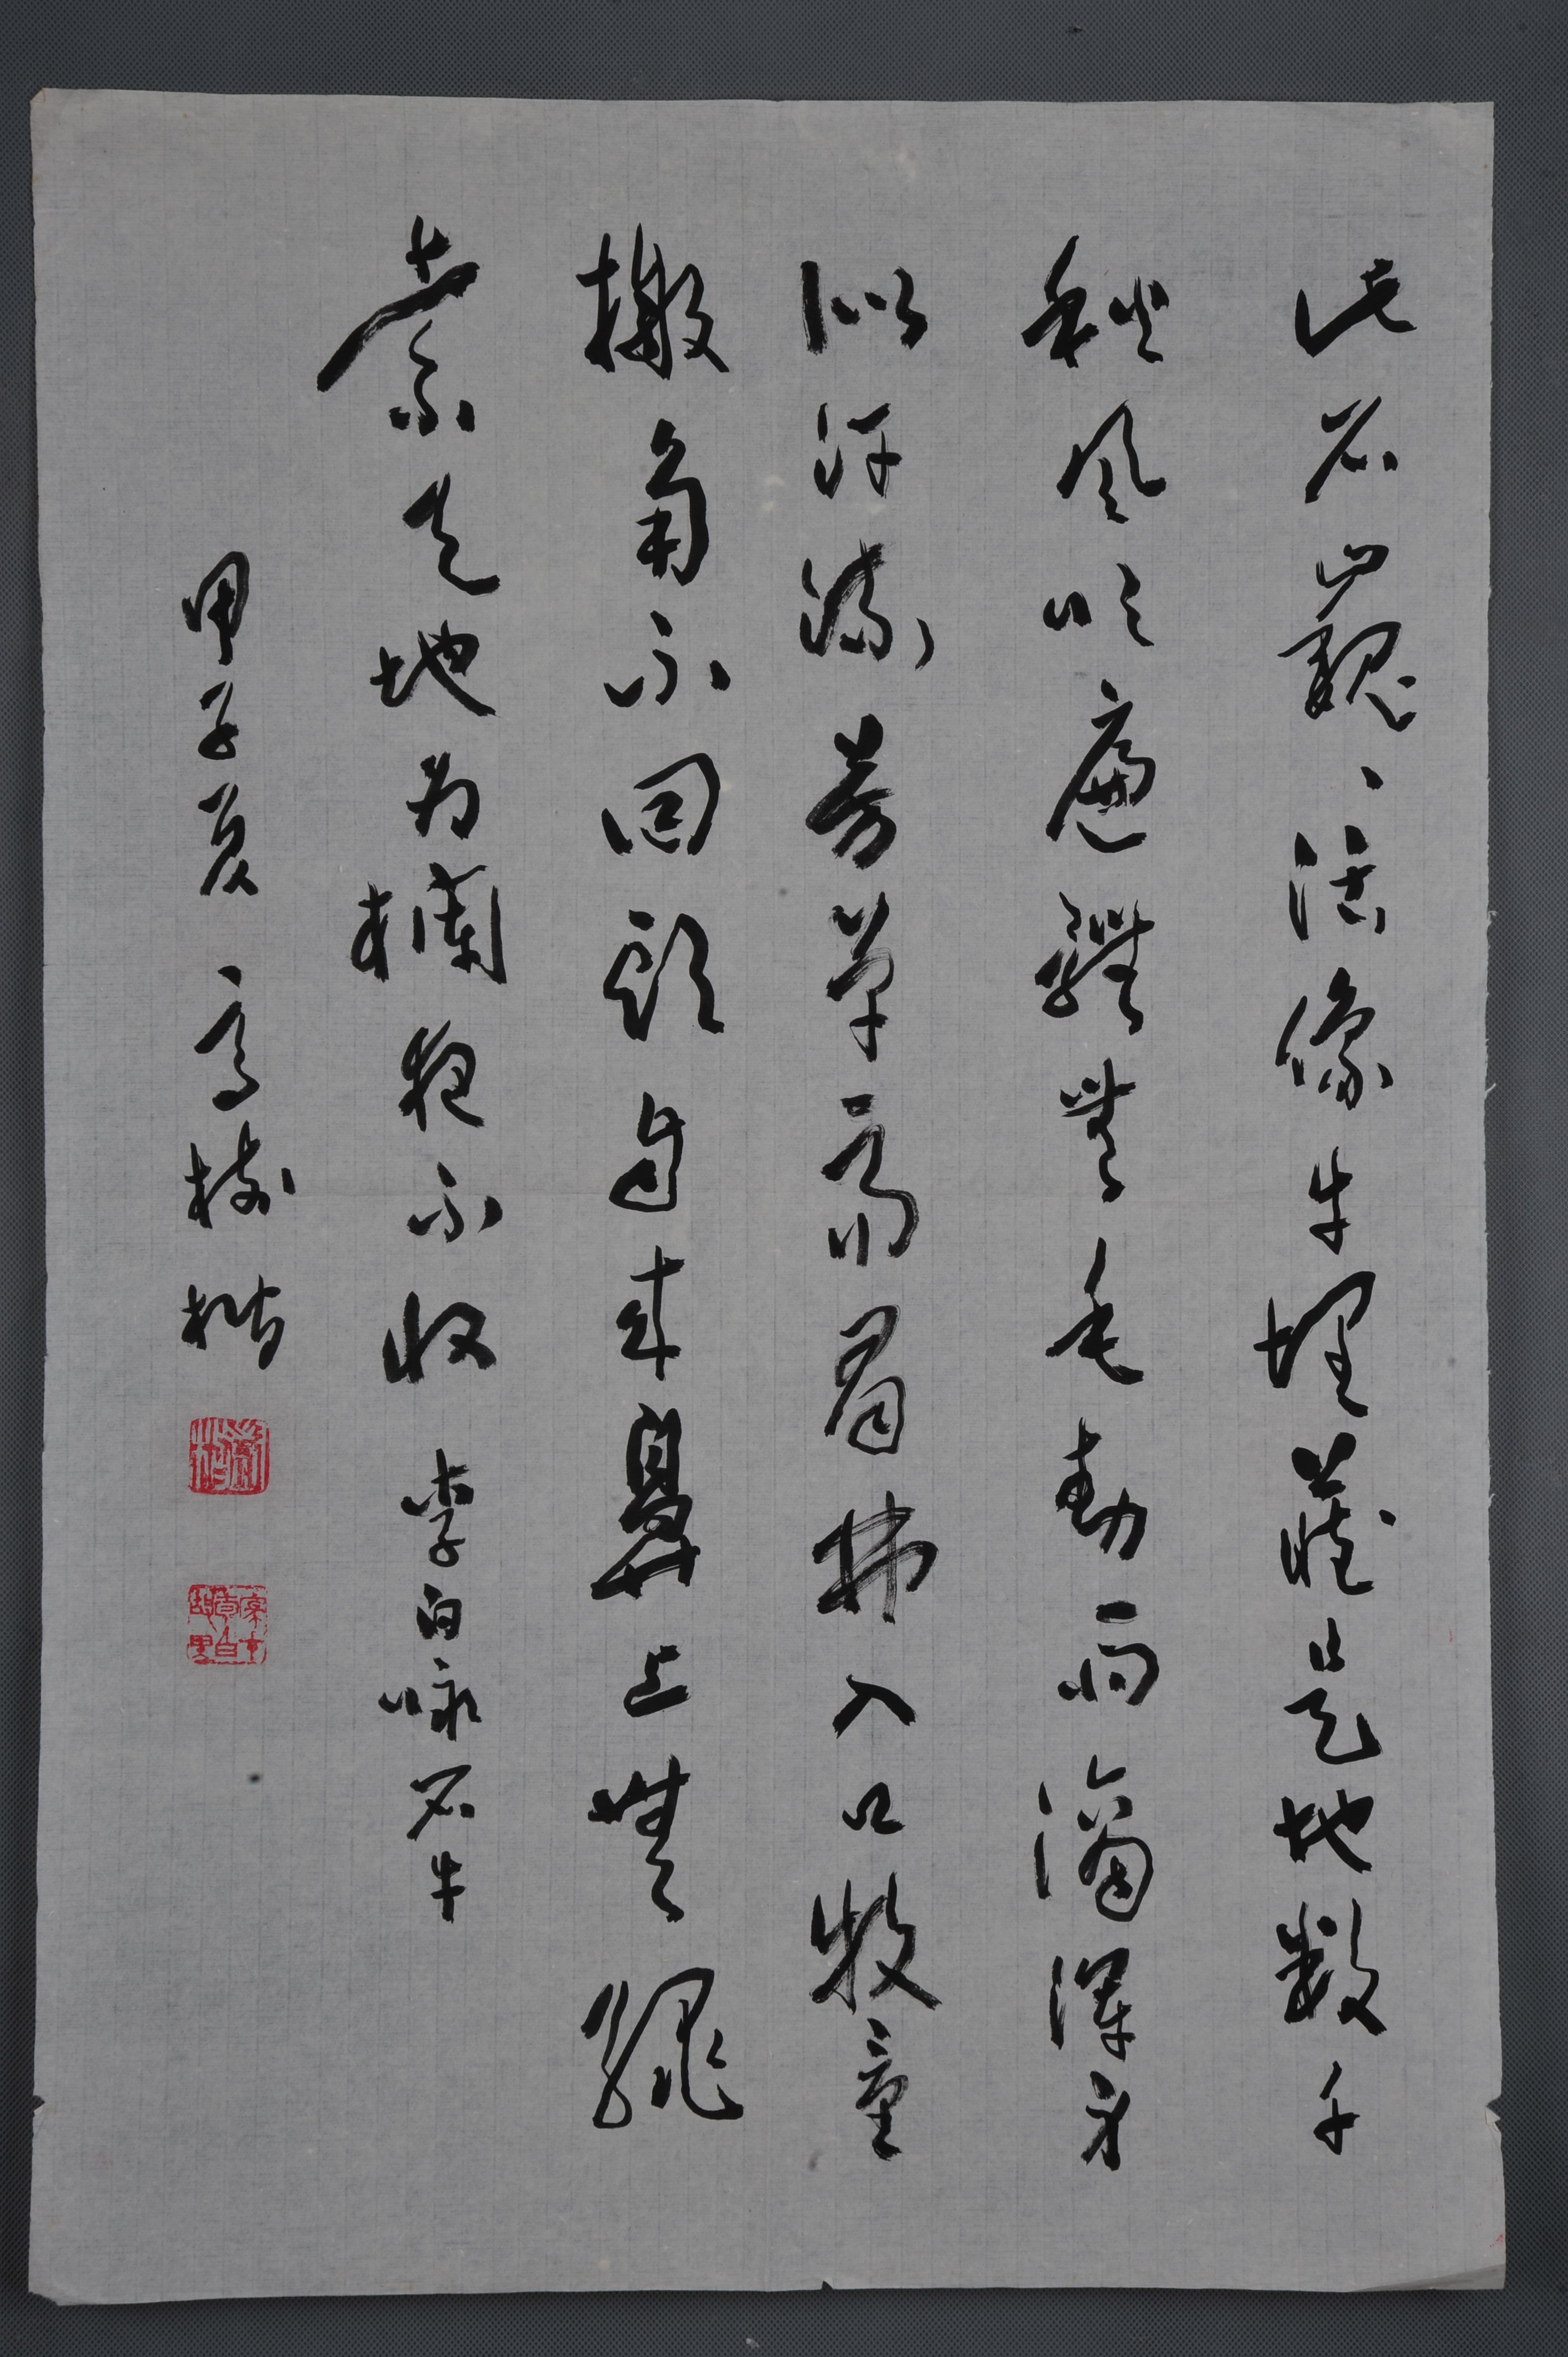 此石巍、活像牛埋藏是地數千
秋風吹遍體無毛動雨滴渾身
似汗流芳草齊眉拂入口牧童
角不回頭自来鼻上無繩
索天地為欄夜不收 李白咏石牛
甲子夏 高樹楷